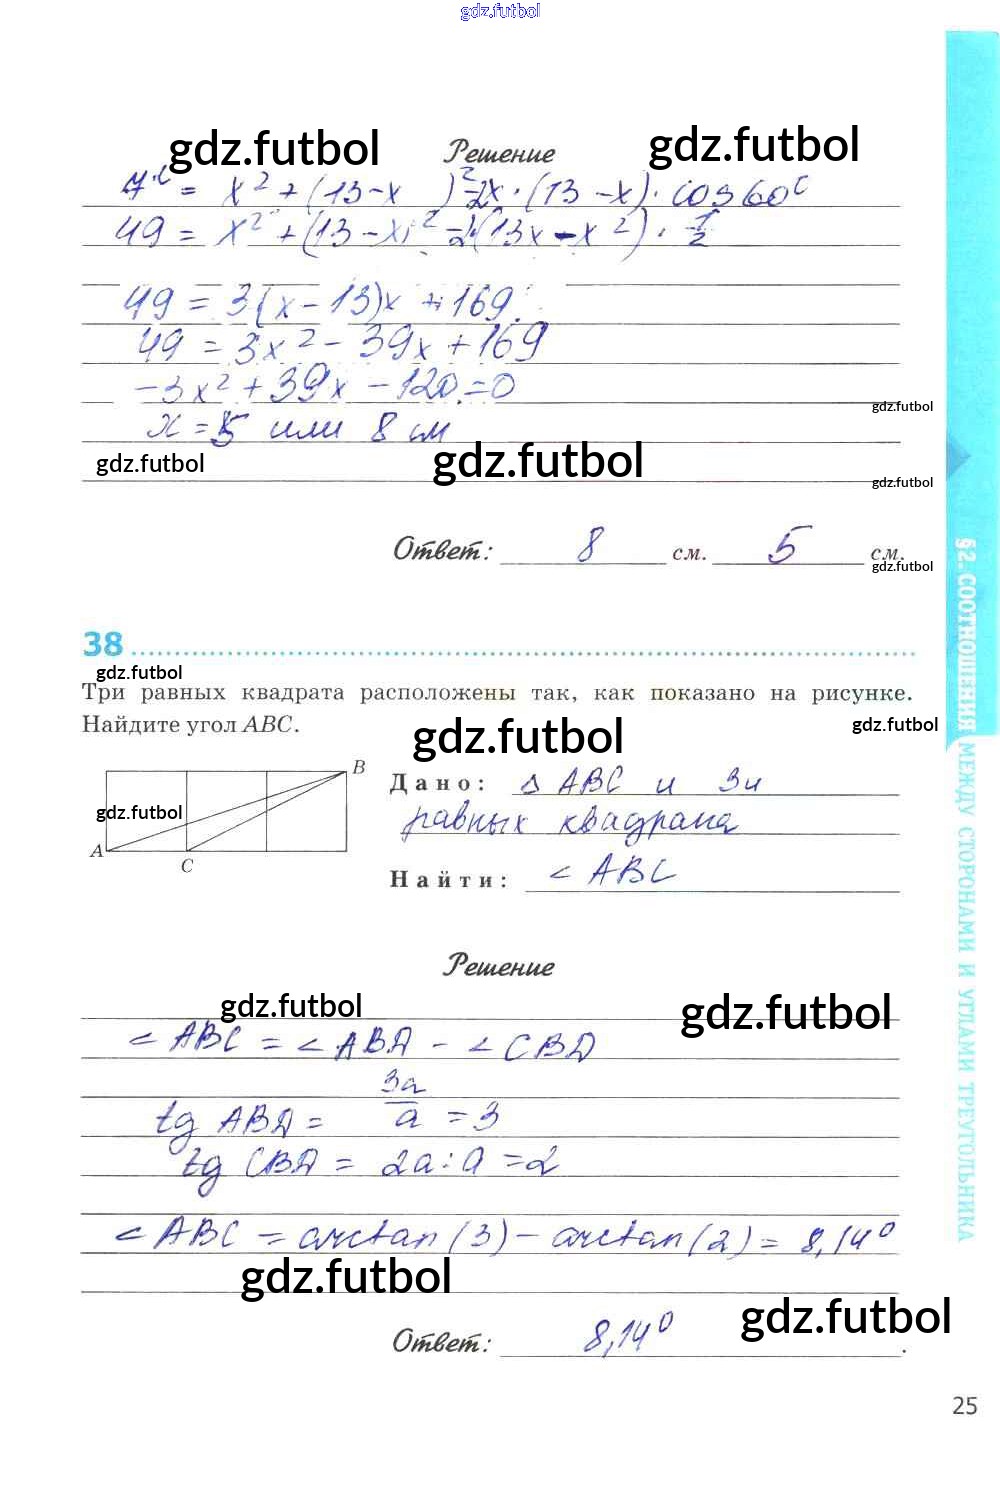 gdz.futbol
gdz.futbol Решение gdz.futbol
7² = x² + (13-x)² - 2x · (13-x) · cos 60°
49 = x² + (13-x)² - 2(13x - x²) · 1/2
49 = 3(x-13)x + 169
49 = 3x² - 39x + 169
-3x² + 39x - 120 = 0
gdz.futbol
x = 5 или 8 см
gdz.futbol gdz.futbol
gdz.futbol
Ответ: 8 см. 5 см.
gdz.futbol
38
gdz.futbol
Три равных квадрата расположены так, как показано на рисунке.
Найдите угол ABC.
gdz.futbol gdz.futbol
B
Дано: Δ ABC и 3и
равных квадрата
gdz.futbol
A
C
Найти: ∠ ABC
Решение
gdz.futbol gdz.futbol
∠ ABC = ∠ ABD - ∠ CBD
tg ABD = 3a/a = 3
tg CBD = 2a : a = 2
∠ ABC = arctan(3) - arctan(2) = 8,14°
gdz.futbol
gdz.futbol
Ответ: 8,14° .
25
§2. СООТНОШЕНИЯ МЕЖДУ СТОРОНАМИ И УГЛАМИ ТРЕУГОЛЬНИКА